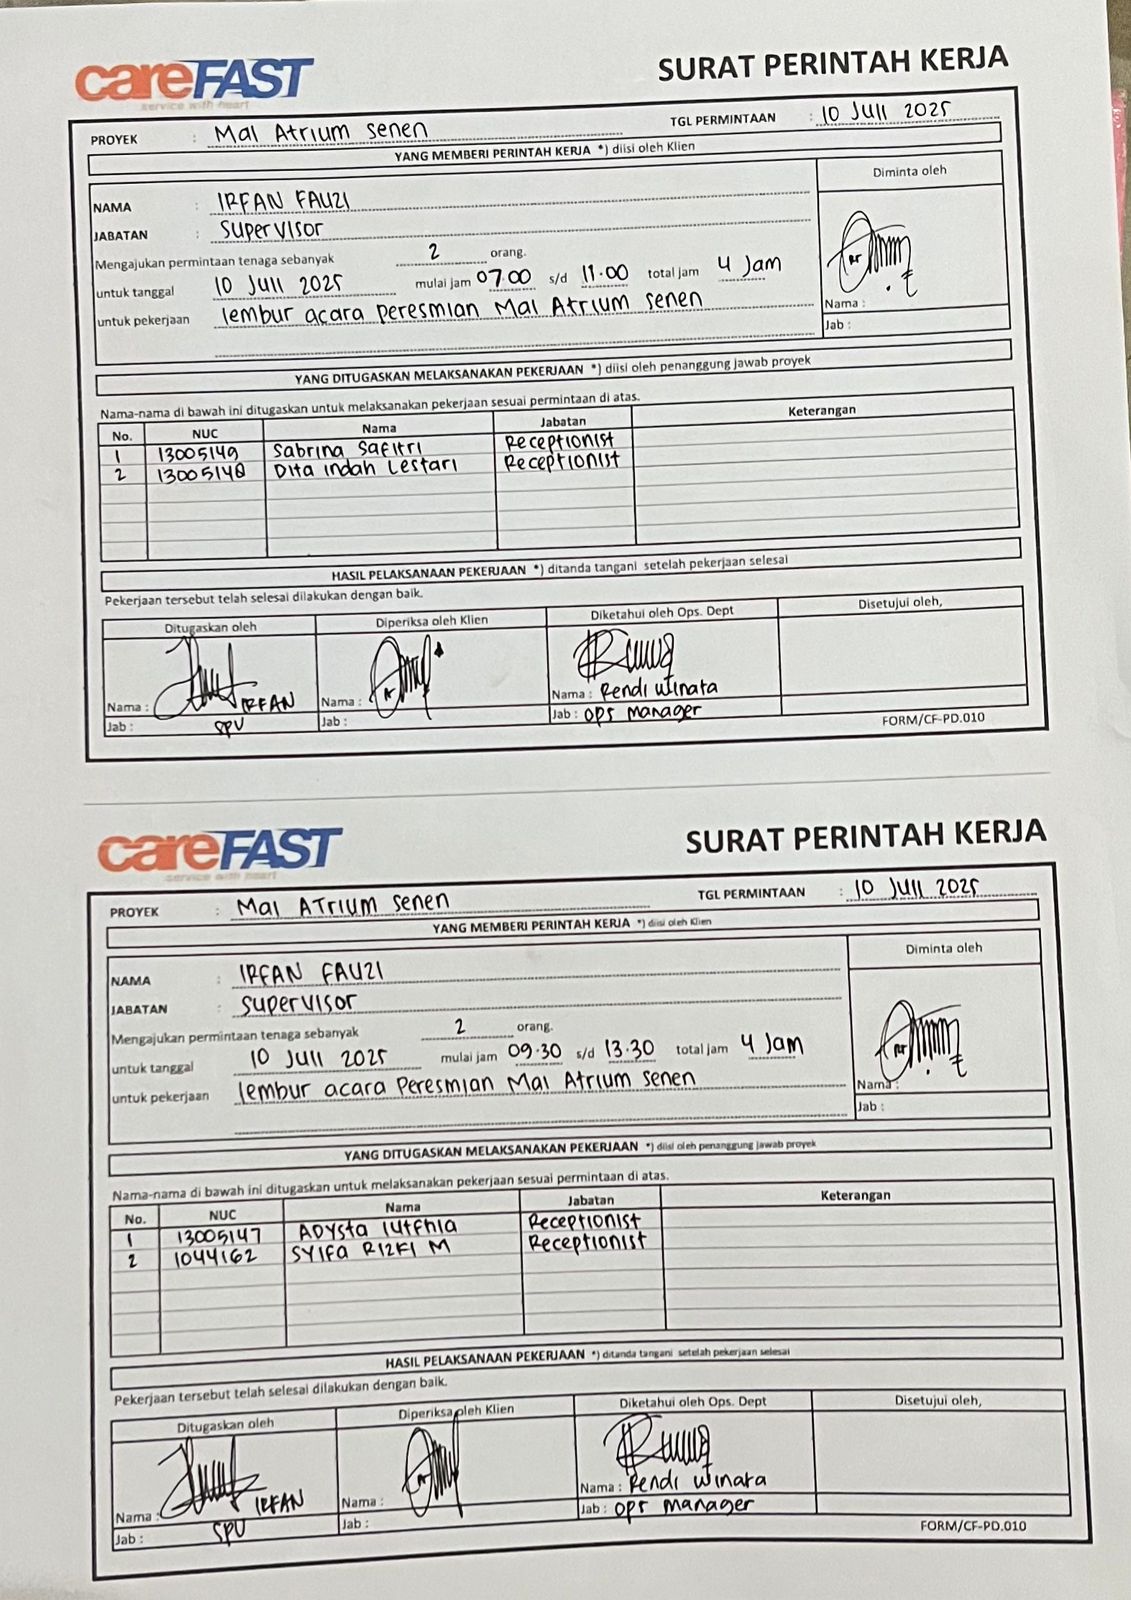 careFAST
service with heart
SURAT PERINTAH KERJA
PROYEK : Mal Atrium Senen
TGL PERMINTAAN : 10 Juli 2025
YANG MEMBERI PERINTAH KERJA *) diisi oleh Klien
Diminta oleh
NAMA : IRFAN FAUZI
JABATAN : Supervisor
Mengajukan permintaan tenaga sebanyak 2 orang.
untuk tanggal 10 Juli 2025 mulai jam 07.00 s/d 11.00 total jam 4 Jam
untuk pekerjaan lembur acara peresmian Mal Atrium Senen
Nama :
Jab :
YANG DITUGASKAN MELAKSANAKAN PEKERJAAN *) diisi oleh penanggung jawab proyek
Nama-nama di bawah ini ditugaskan untuk melaksanakan pekerjaan sesuai permintaan di atas.
No. NUC Nama Jabatan Keterangan
1 13005149 Sabrina Safitri Receptionist
2 13005148 Dita Indah Lestari Receptionist
HASIL PELAKSANAAN PEKERJAAN *) ditanda tangani setelah pekerjaan selesai
Pekerjaan tersebut telah selesai dilakukan dengan baik.
Ditugaskan oleh Diperiksa oleh Klien Diketahui oleh Ops. Dept Disetujui oleh,
Nama : IRFAN Nama : Nama : Rendi Winata
Jab : SPV Jab : Jab : Ops Manager
FORM/CF-PD.010
careFAST
service with heart
SURAT PERINTAH KERJA
PROYEK : Mal Atrium Senen
TGL PERMINTAAN : 10 Juli 2025
YANG MEMBERI PERINTAH KERJA *) diisi oleh Klien
Diminta oleh
NAMA : IRFAN FAUZI
JABATAN : Supervisor
Mengajukan permintaan tenaga sebanyak 2 orang.
untuk tanggal 10 Juli 2025 mulai jam 09.30 s/d 13.30 total jam 4 Jam
untuk pekerjaan lembur acara peresmian Mal Atrium Senen
Nama :
Jab :
YANG DITUGASKAN MELAKSANAKAN PEKERJAAN *) diisi oleh penanggung jawab proyek
Nama-nama di bawah ini ditugaskan untuk melaksanakan pekerjaan sesuai permintaan di atas.
No. NUC Nama Jabatan Keterangan
1 13005147 Adysta lutfhia Receptionist
2 1044162 Syifa Rizki M Receptionist
HASIL PELAKSANAAN PEKERJAAN *) ditanda tangani setelah pekerjaan selesai
Pekerjaan tersebut telah selesai dilakukan dengan baik.
Ditugaskan oleh Diperiksa oleh Klien Diketahui oleh Ops. Dept Disetujui oleh,
Nama : IRFAN Nama : Nama : Rendi Winara
Jab : SPV Jab : Jab : Ops Manager
FORM/CF-PD.010